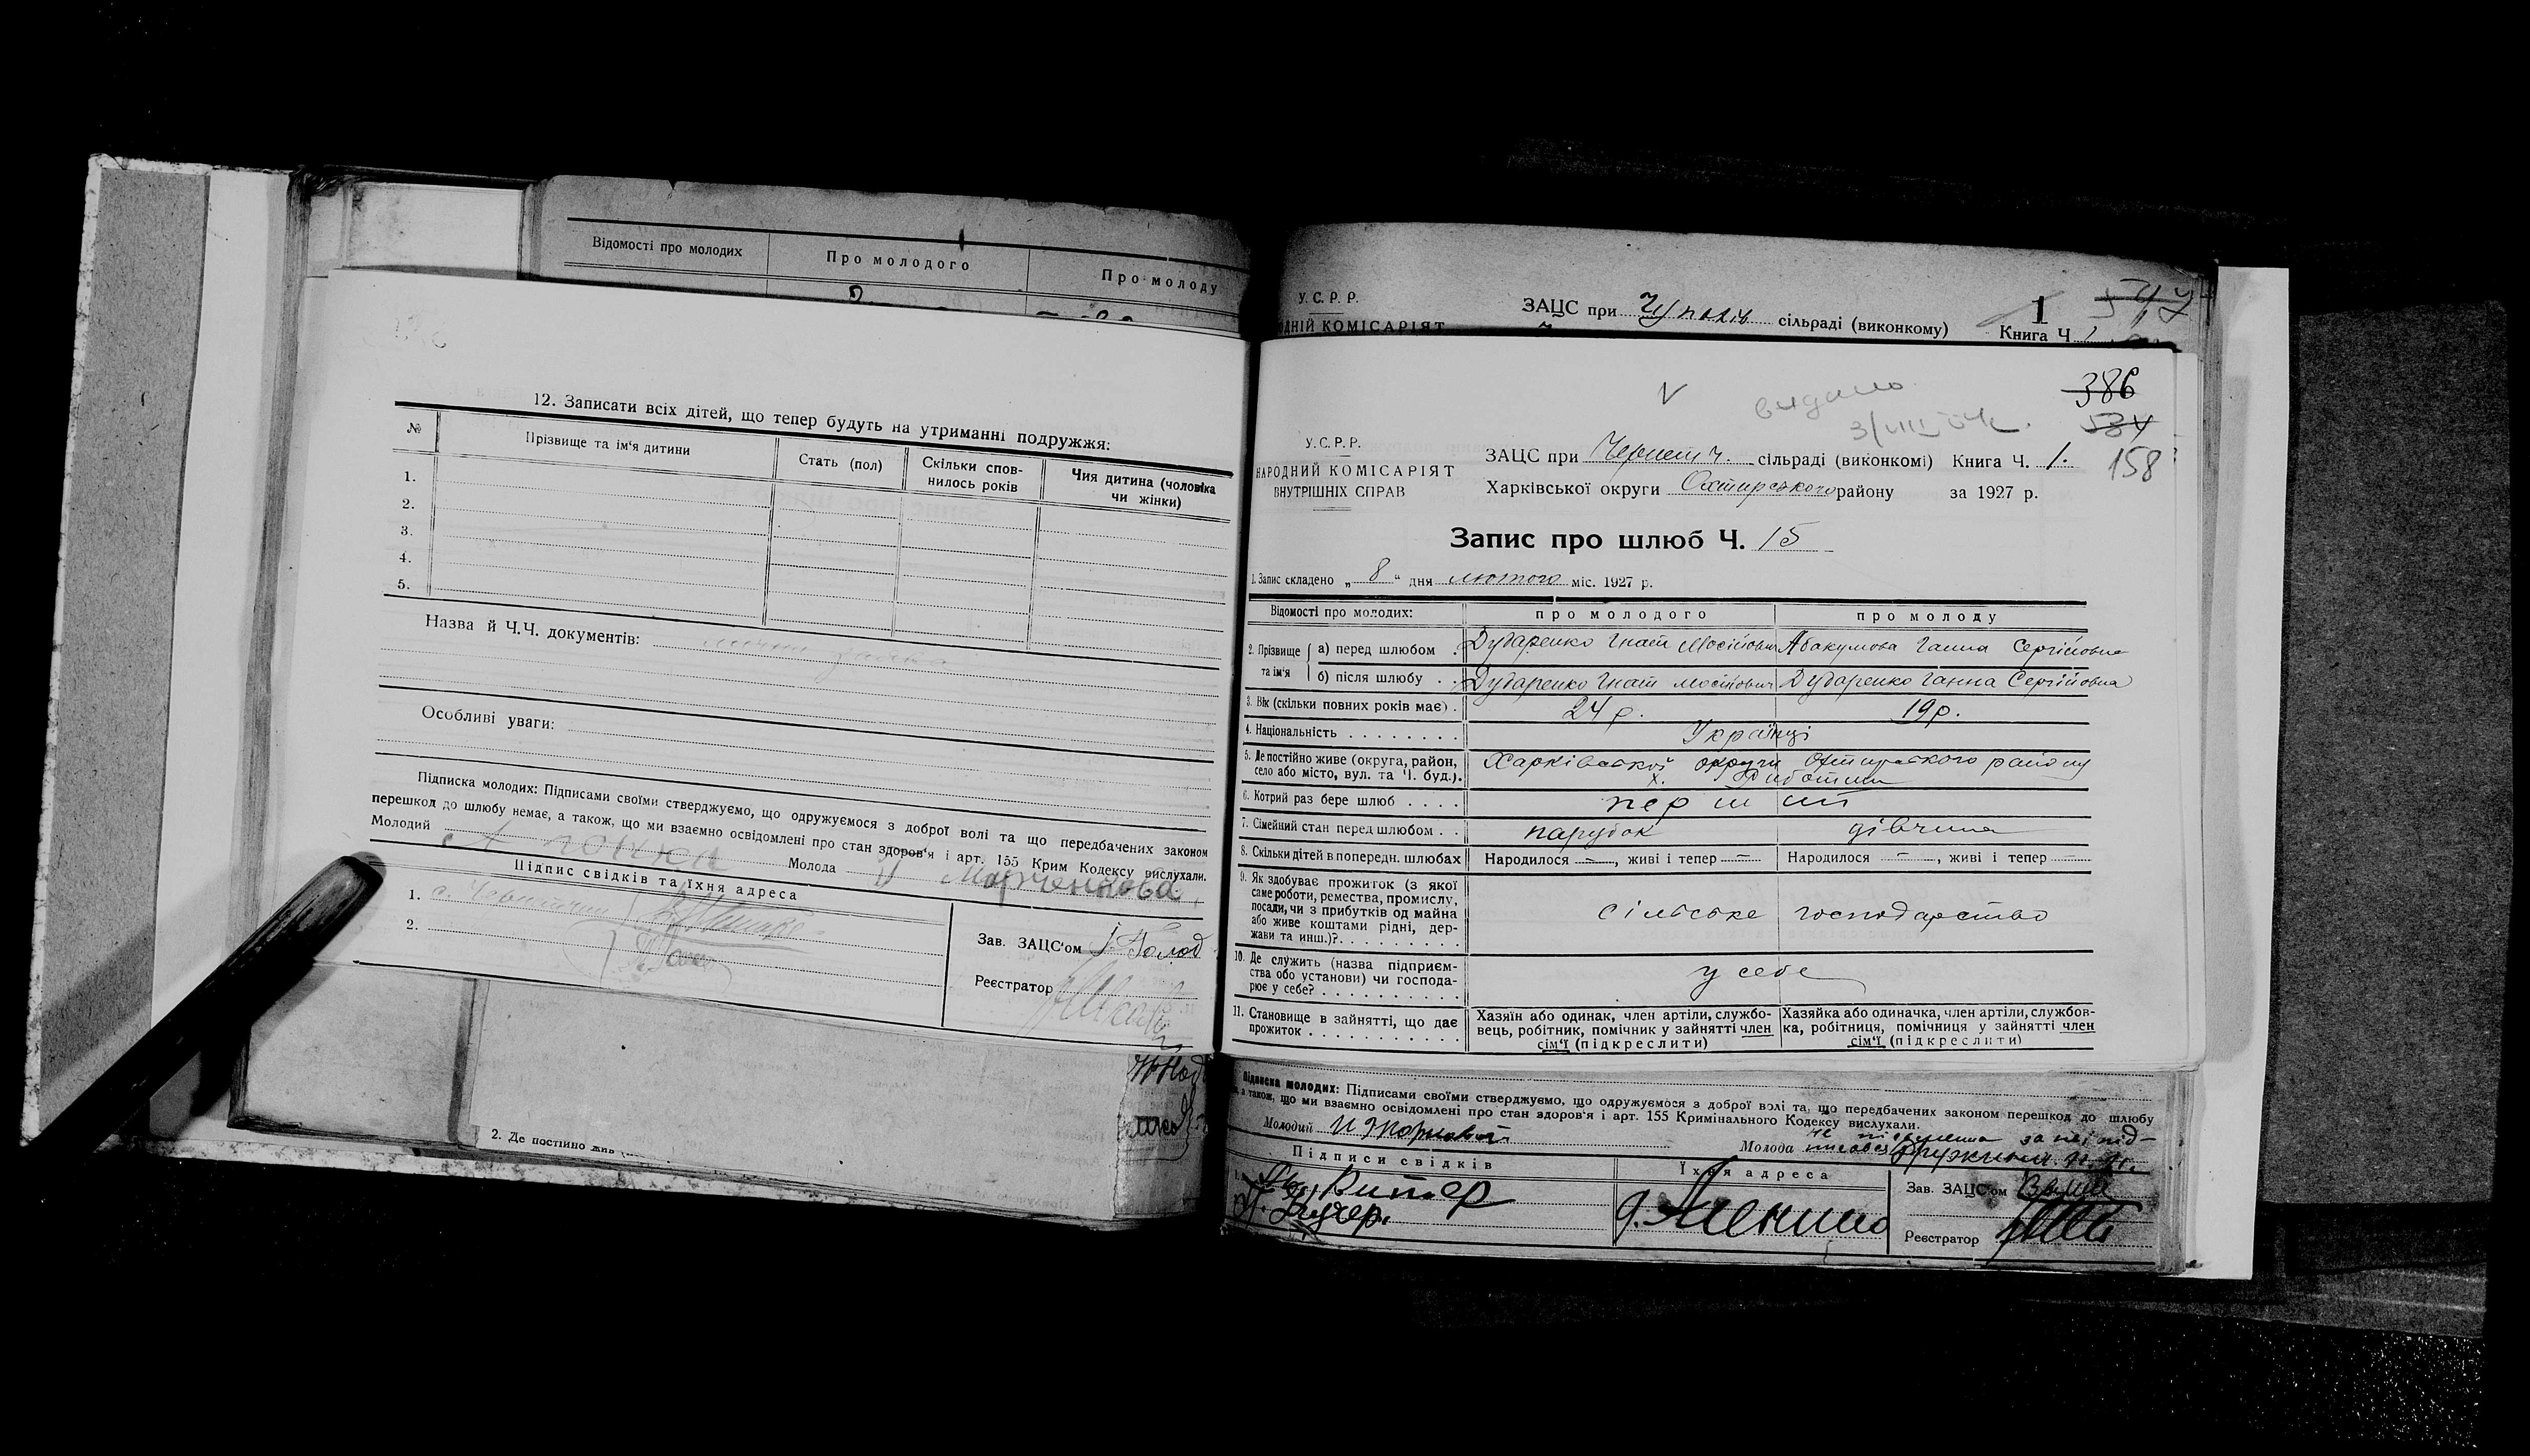 Відомості про молодих
Про молодого
Про молоду
12. Записати всіх дітей, що тепер будуть на утриманні подружжя:
№
Прізвище та ім'я дитини
Стать (пол)
Скільки спов-
нилось років
Чия дитина (чоловіка
чи жінки)
1.
2.
3.
4.
5.
Назва й Ч.Ч. документів:
Особливі уваги:
Підписка молодих: Підписами своїми стверджуємо, що одружуємося з доброї волі та що передбачених законом
перешкод до шлюбу немає, а також, що ми взаємно освідомлені про стан здоров'я і арт. 155 Крим Кодексу вислухали.
Молодий
Молода Марченкова
Підпис свідків та їхня адреса
1.
2.
Зав. ЗАЦС'ом
Реєстратор
У.С.Р.Р.
ЗАЦС при сільраді (виконкому)
1
Книга Ч.
НИЙ КОМІСАРІЯТ
547
видано
3/VIII
386
534
158
У.С.Р.Р.
НАРОДНИЙ КОМІСАРІЯТ
ВНУТРІШНІХ СПРАВ
ЗАЦС при Чернетч. сільраді (виконкомі) Книга Ч. 1.
Харківської округи Охтирського району за 1927 р.
Запис про шлюб Ч. 15
1. Запис складено „ 8 “ дня лютого міс. 1927 р.
Відомості про молодих:
про молодого
про молоду
2. Прізвище та ім'я
а) перед шлюбом
Дударенко Гнат Мосійович
Абакумова Ганна Сергійовна
б) після шлюбу
Дударенко Гнат Мосійович
Дударенко Ганна Сергійовна
3. Вік (скільки повних років має)
24 р.
19 р.
4. Національність
Українці
5. Де постійно живе (округа, район,
село або місто, вул. та Ч. буд.).
Харківської округи Охтирського району
х.
6. Котрий раз бере шлюб
перший
7. Сімейний стан перед шлюбом
парубок
дівчина
8. Скільки дітей в попередн. шлюбах
Народилося —, живі і тепер —
Народилося —, живі і тепер —
9. Як здобуває прожиток (з якої
саме роботи, ремества, промислу,
посади, чи з прибутків од майна
або живе коштами рідні, дер-
жави та инш.)?
сільське господарство
10. Де служить (назва підприєм-
ства або установи) чи господа-
рює у себе?
у себе
11. Становище в зайнятті, що дає
прожиток
Хазяїн або одинак, член артіли, службо-
вець, робітник, помічник у зайнятті член
сім'ї (підкреслити)
Хазяйка або одиначка, член артіли, службов-
ка, робітниця, помічниця у зайнятті член
сім'ї (підкреслити)
2. Де постійно
Підписка молодих: Підписами своїми стверджуємо, що одружуємося з доброї волі та, що передбачених законом перешкод до шлюбу
а також, що ми взаємно освідомлені про стан здоров'я і арт. 155 Кримінального Кодексу вислухали.
Молодий
Молода
Підписи свідків
Їхня адреса
Зав. ЗАЦС'ом
Реєстратор